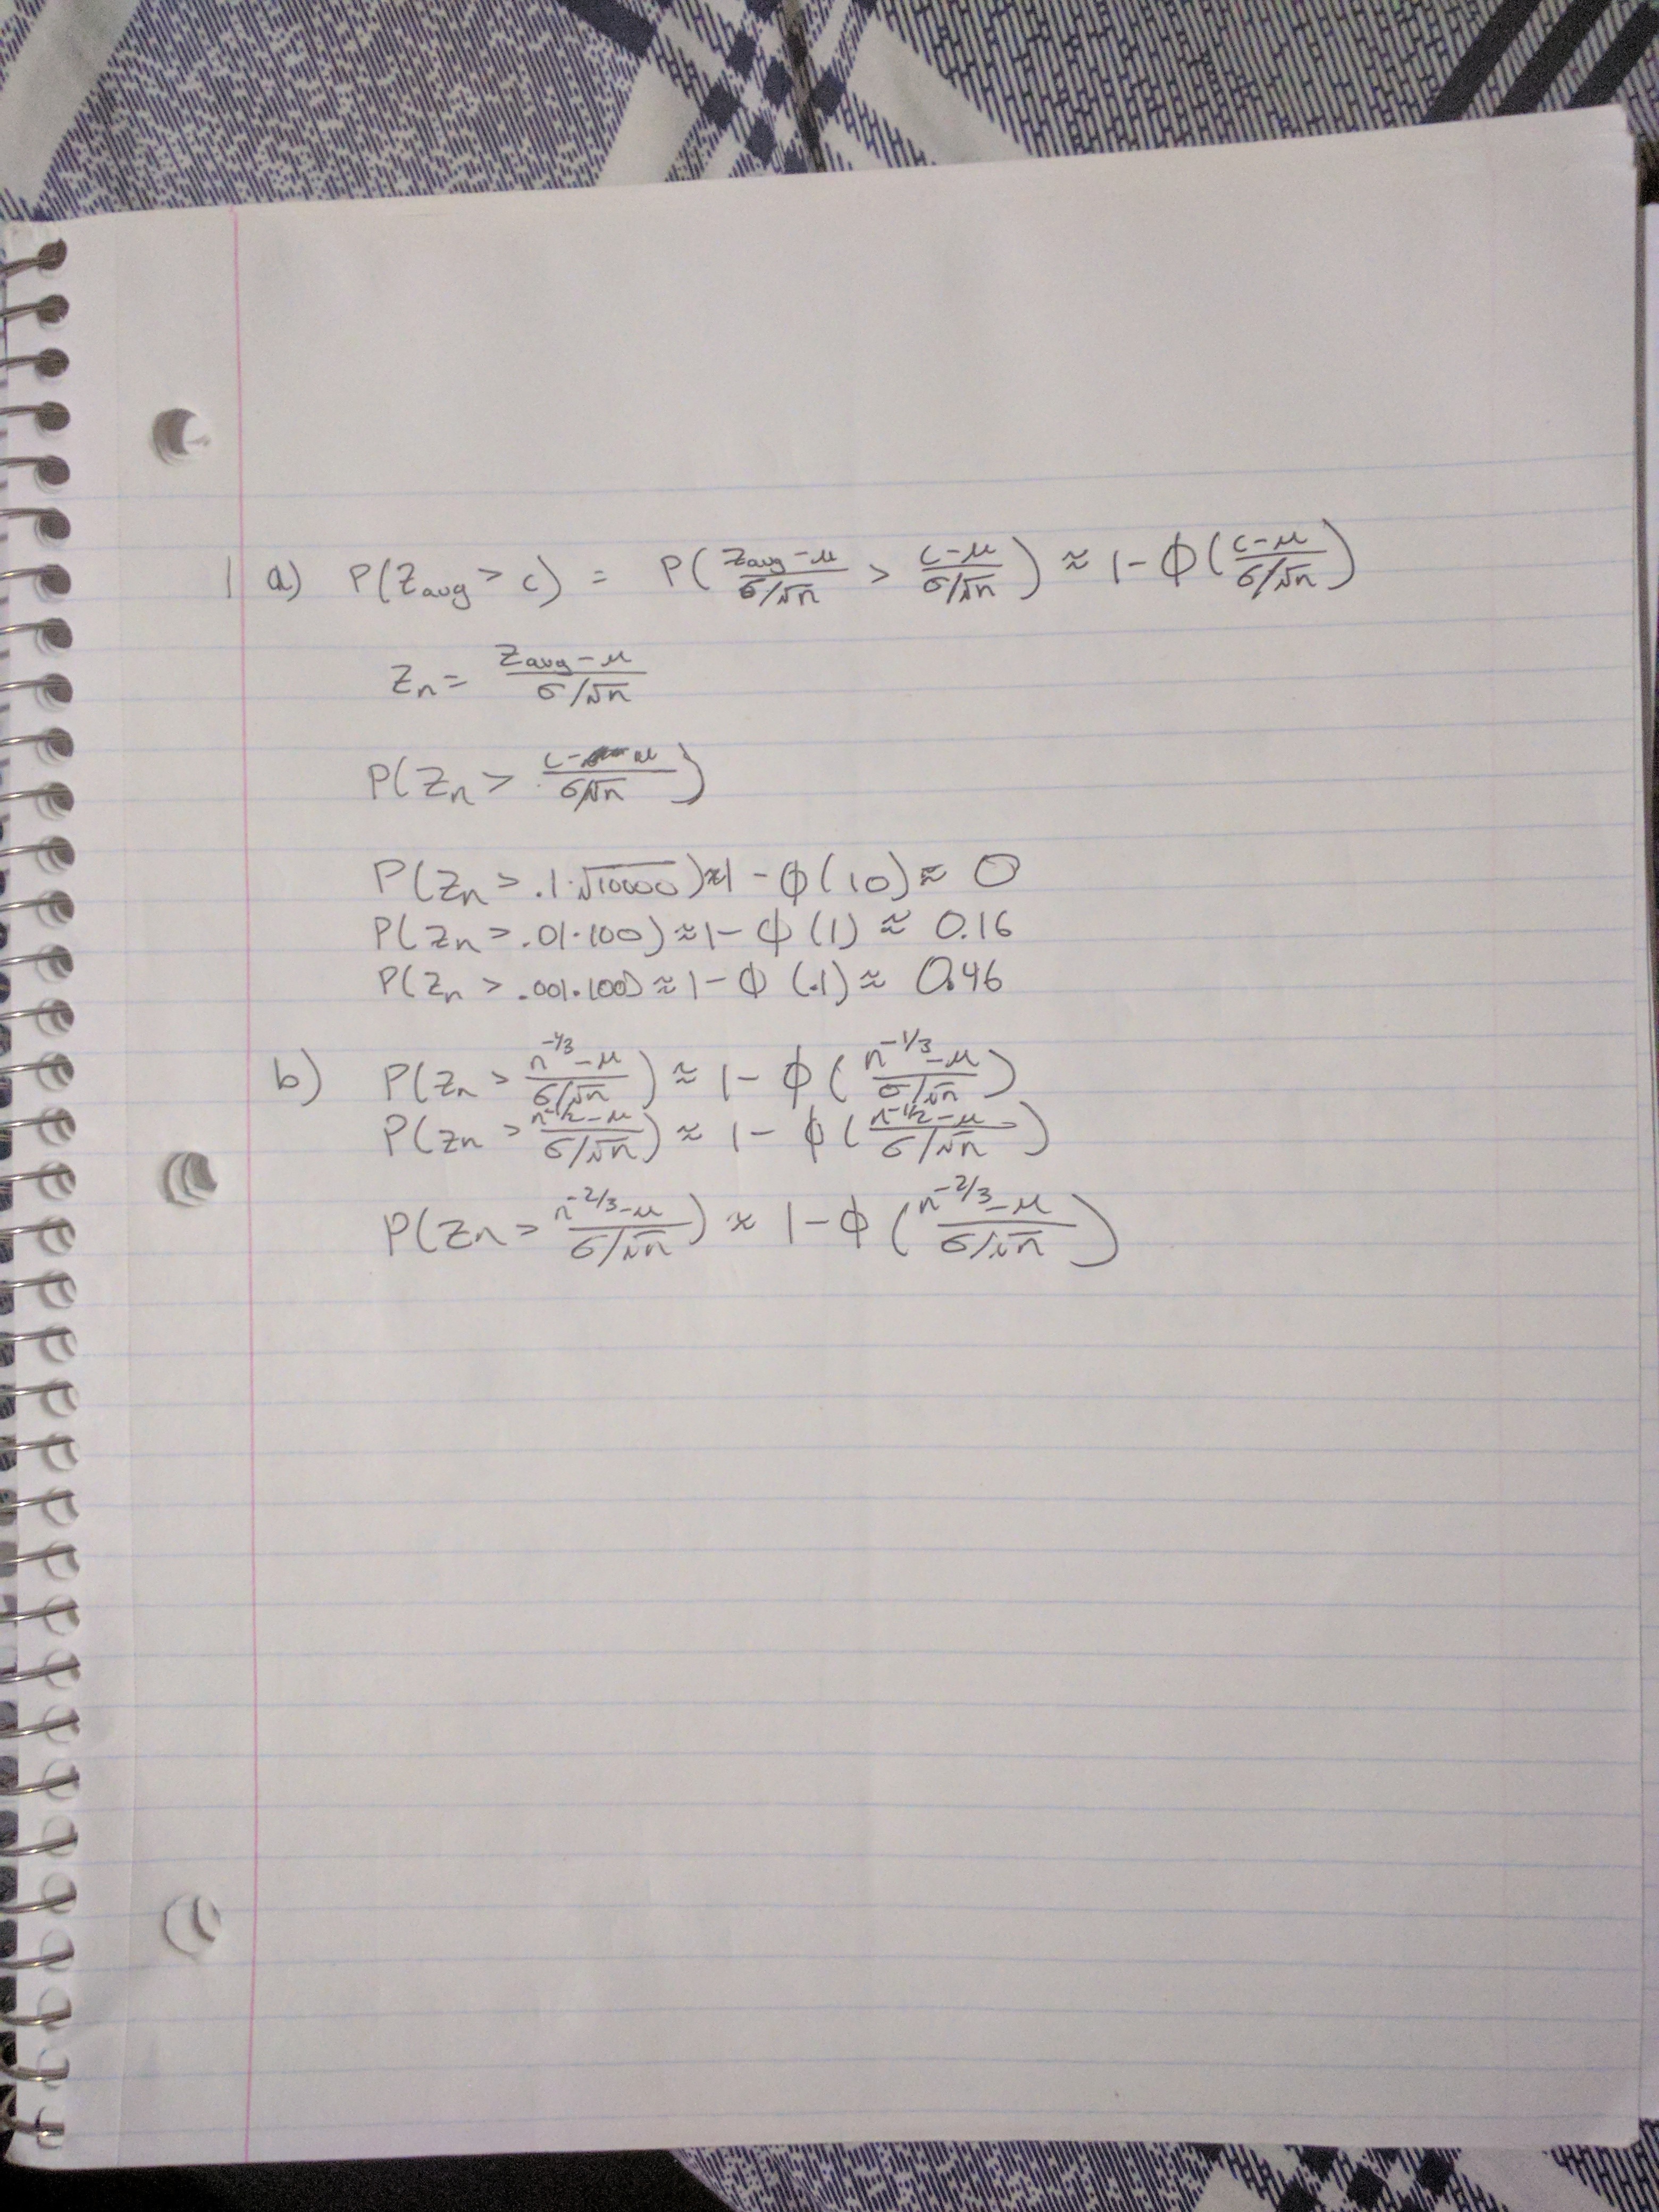 1 a) P(Zavg > c) = P( (Zavg-μ)/(σ/√n) > (c-μ)/(σ/√n) ) ≈ 1-Φ( (c-μ)/(σ/√n) )
Zn = (Zavg-μ)/(σ/√n)
P(Zn > (c-μ)/(σ/√n) )
P(Zn > .1·√10000) ≈ 1 - Φ(10) ≈ 0
P(Zn > .01·100) ≈ 1- Φ(1) ≈ 0.16
P(Zn > .001·100) ≈ 1- Φ(.1) ≈ 0.46
b) P(Zn > (n^-1/3-μ)/(σ/√n) ) ≈ 1- Φ( (n^-1/3-μ)/(σ/√n) )
P(Zn > (n^-1/2-μ)/(σ/√n) ) ≈ 1- Φ( (n^-1/2-μ)/(σ/√n) )
P(Zn > (n^-2/3-μ)/(σ/√n) ) ≈ 1-Φ( (n^-2/3-μ)/(σ/√n) )